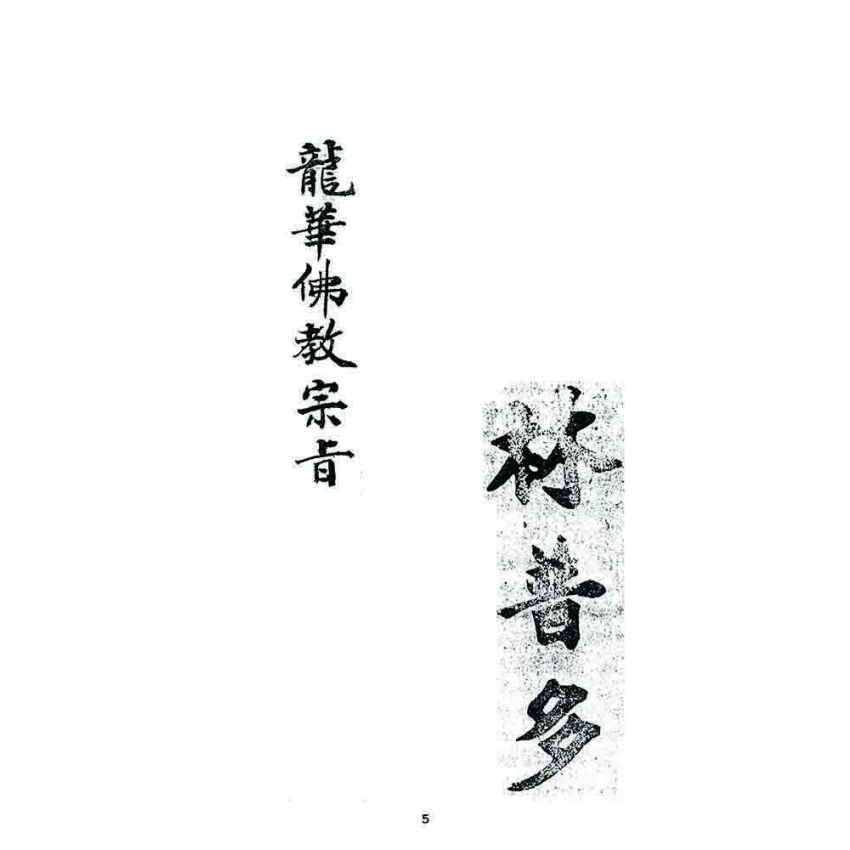 林普多
龍華佛教宗旨
5